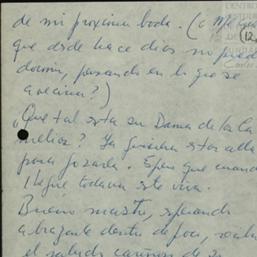 de mi proxima boda. (
que desde hace dias no pued
dormir, pensando en lo que se
avecina?)
"Que tal esta su Dama de las Ca
melias? Ya quisiera estar alla
para gozarla. Espero que cuando
llegue todavia este viva.
Bueno maestro, esperando
abrazarle dentro de poco, reciba
el saludo cariñoso de su